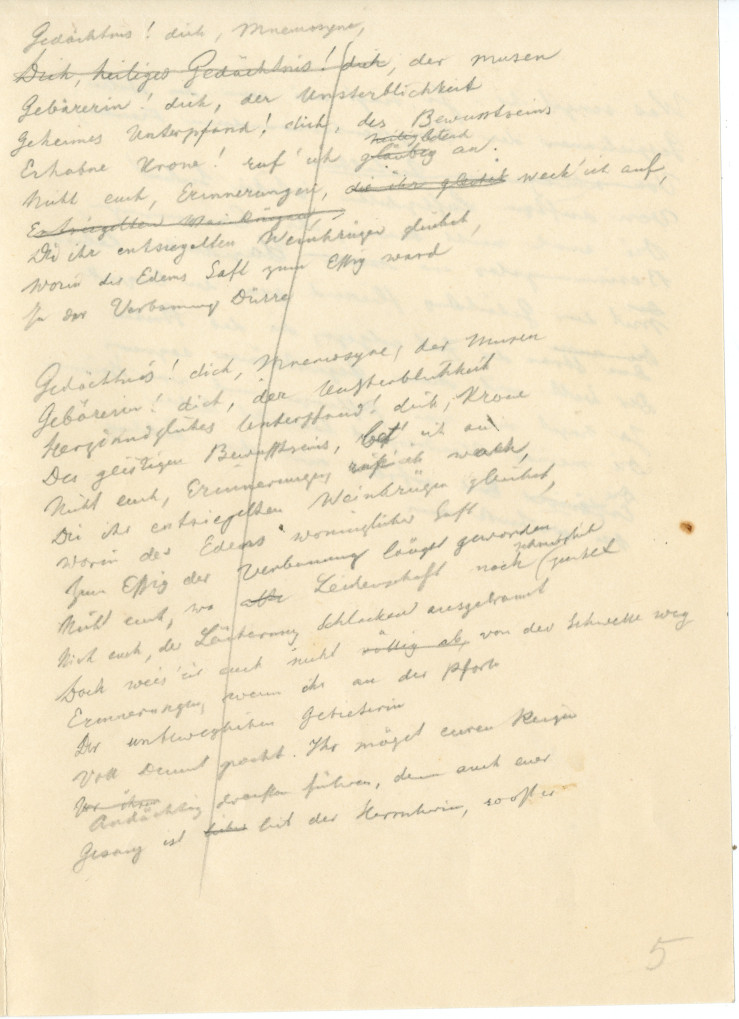 Gedächtnis! dich, Mnemosyne,
Dich, heiliges Gedächtnis! dich, der Musen
Gebärerin! dich, der Unsterblichkeit
Geheimes Unterpfand! dich, des Bewusstseins
Erhabne Krone! ruf' ich gläubig an.
Nicht euch, Erinnerungen, die ihr gleicht weck' ich auf,
Entsiegelten Weinkrügen
Die ihr entsiegelten Weinkrügen gleichet,
Worin des Edens Saft zum Essig ward
In der Verbannung Dürre
Gedächtnis! dich, Mnemosyne, der Musen
Gebärerin! dich, der Unsterblichkeit
Unterpfand! dich, Krone
Des geistigen Bewusstseins, bet' ich an
Nicht euch, Erinnerungen, ruf' ich wach,
Die ihr entsiegelten Weinkrügen gleichet,
Worin des Edens wonniglicher Saft
Zum Essig der Verbannung längst geworden
Nicht euch, wo Leidenschaft noch schwelt
Nicht euch, der Läuterung Schlacken
Doch weis' ich euch nicht völlig ab, von der Schwelle weg
Erinnerungen, wenn ihr an der Pforte
Der unbeweglichen Gebieterin
Voll Demut pocht. Ihr möget euren Reigen
Vor ihren
Andächtig draußen führen, denn auch euer
Gesang ist der Herrscherin, so oft er
5